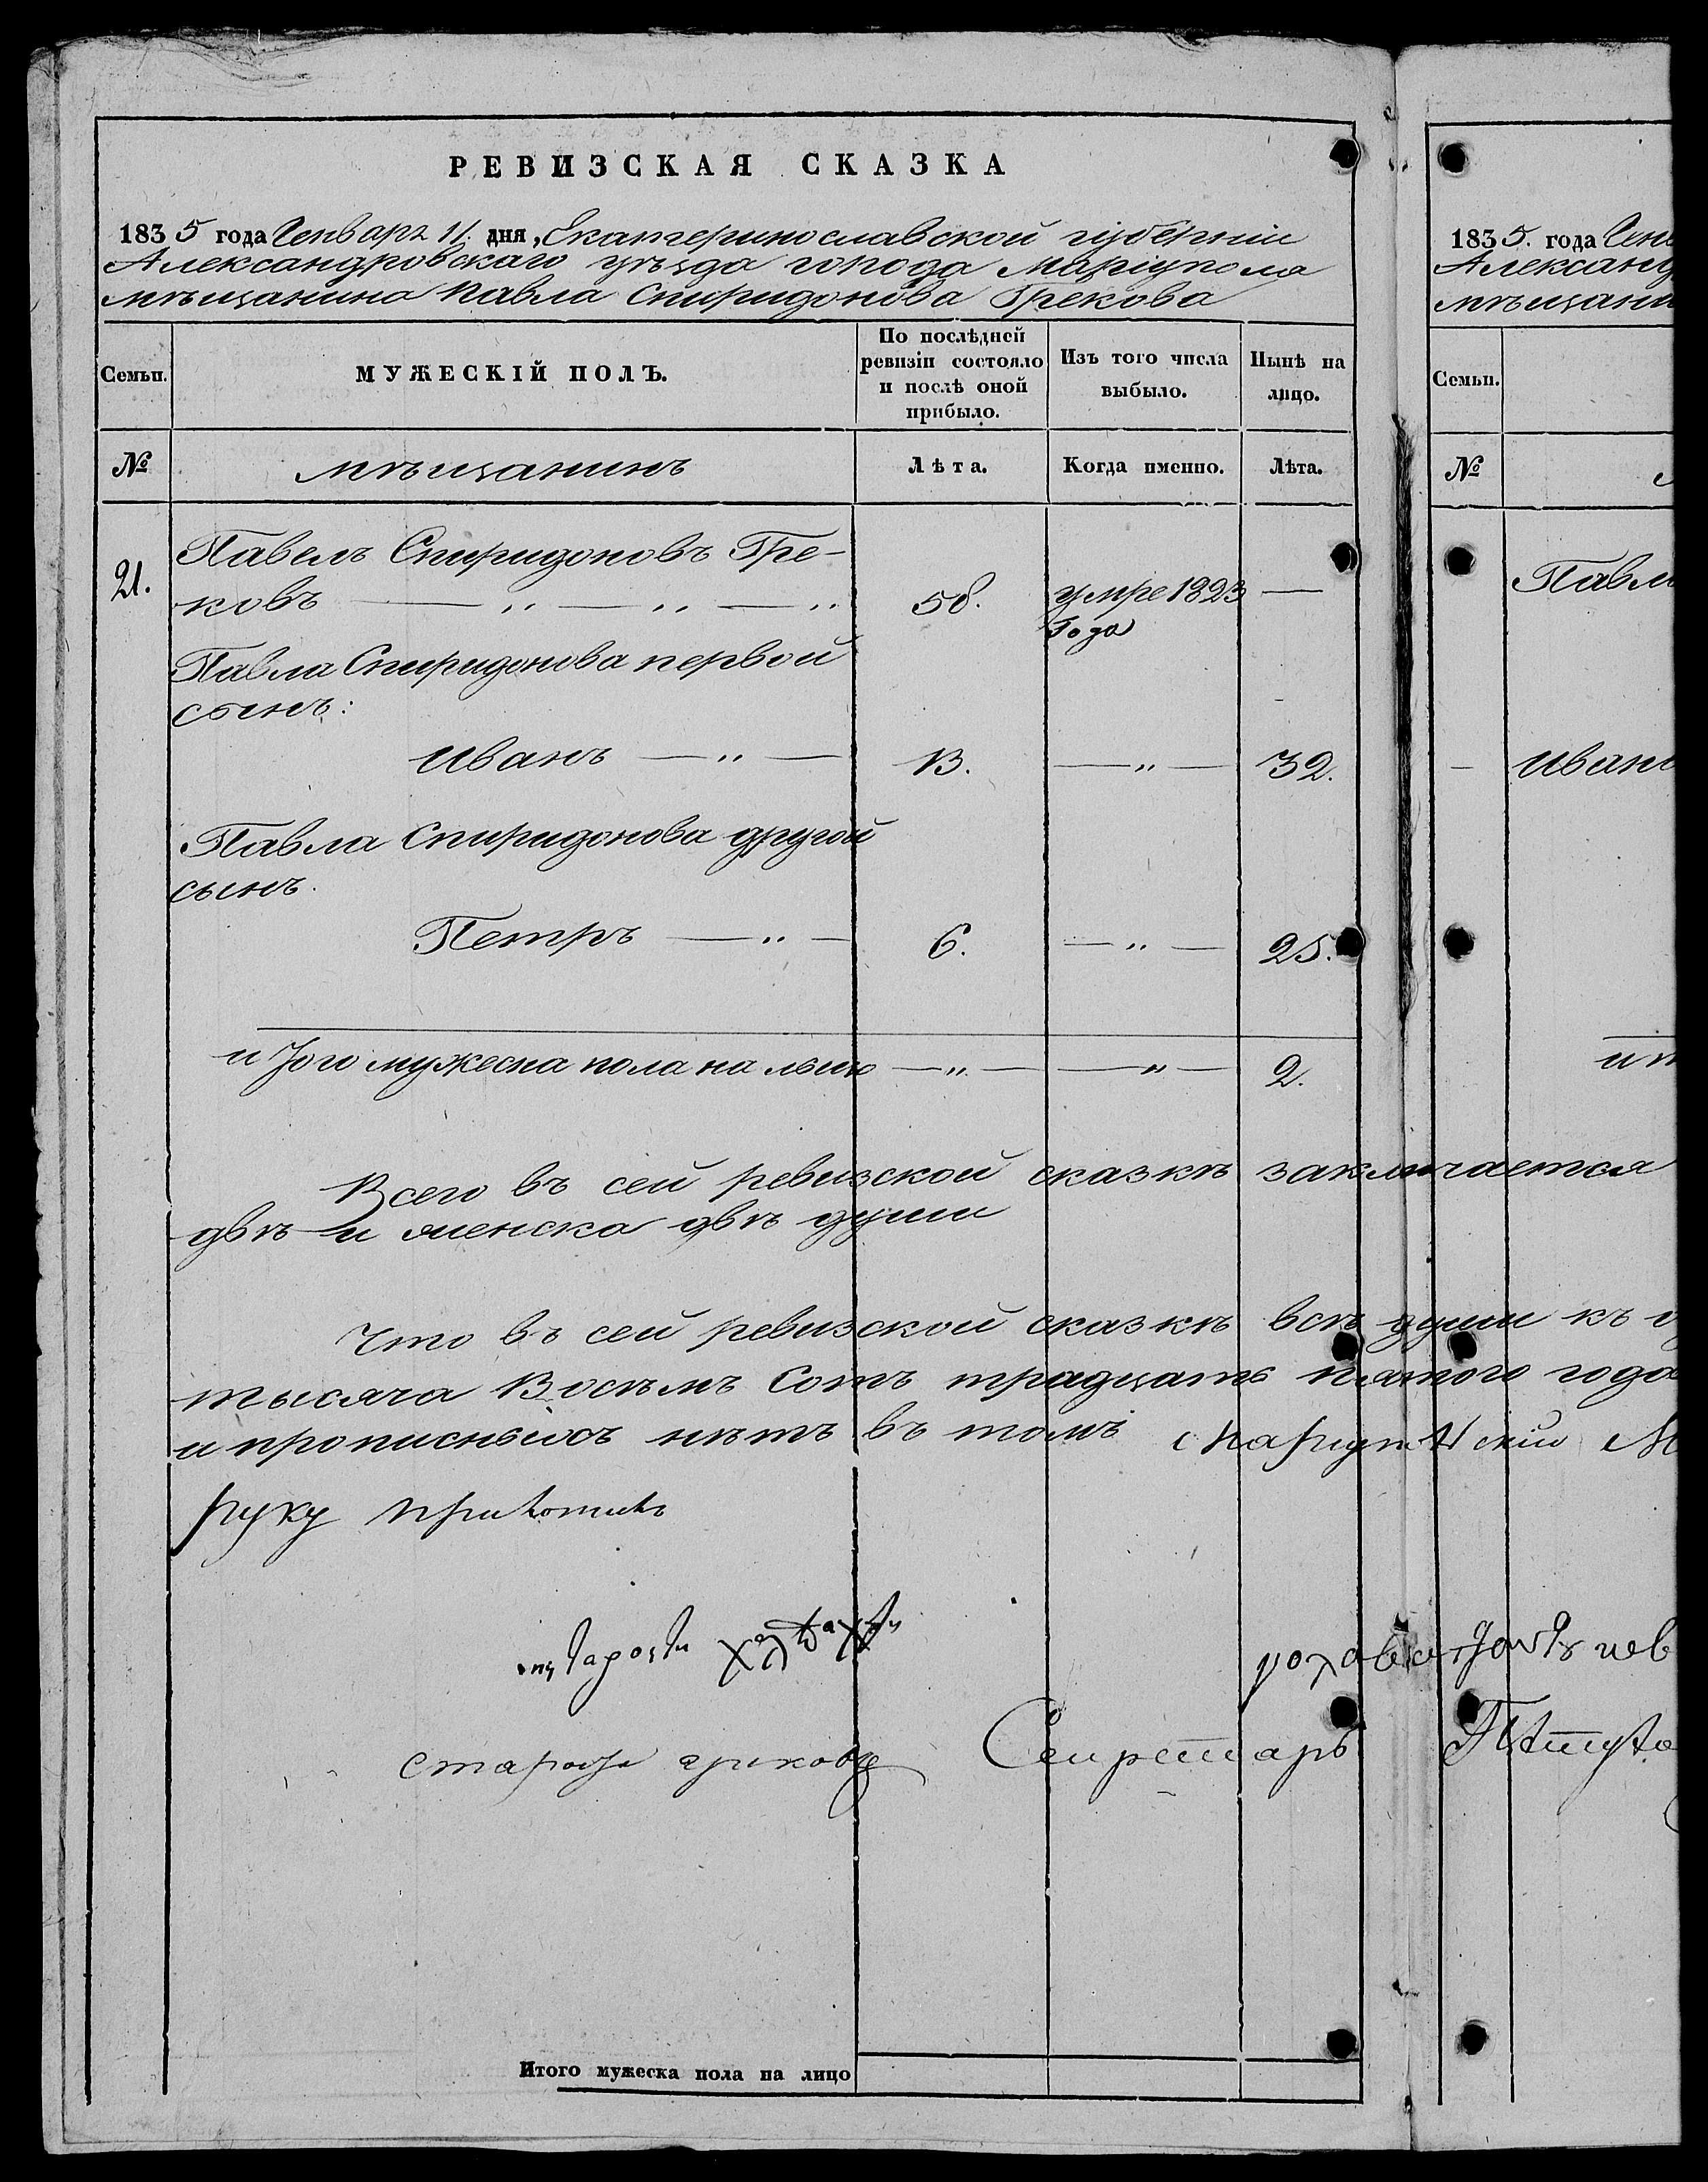 РЕВИЗСКАЯ СКАЗКА
1835 года Генваря 11. дня, Екатеринославской губерніи
Александровскаго уѣзда города Маріуполя
мѣщанина Павла Спиридонова Грекова
Семьи.
МУЖЕСКІЙ ПОЛЪ.
По послѣдней
ревизіи состояло
и послѣ оной
прибыло.
Изъ того числа
выбыло.
Нынѣ на
лицо.
№
мѣщанинъ
Лѣта.
Когда именно.
Лѣта.
21.
Павелъ Спиридоновъ Гре-
ковъ — „ — „ — „ 58. умре 1823 —
года
Павла Спиридонова первой
сынъ:
Иванъ — „ — 13. — „ — 32.
Павла Спиридонова другой
сынъ.
Петръ — „ — 6. — „ — 25.
итого мужеска пола на лицо — „ — — „ — 2.
Всего въ сей ревизской сказкѣ заключается
двѣ и женска двѣ души
Что въ сей ревизской сказкѣ всѣ души къ
тысяча Восѣмъ Сотъ традцать пятого года
и прописныхъ нѣтъ въ томъ
руку приложилъ
староста
Секретарь
Итого мужеска пола на лицо
1835. года Ген
Александ
мѣщани
Семьи.
№
Павл
— Иван
ит